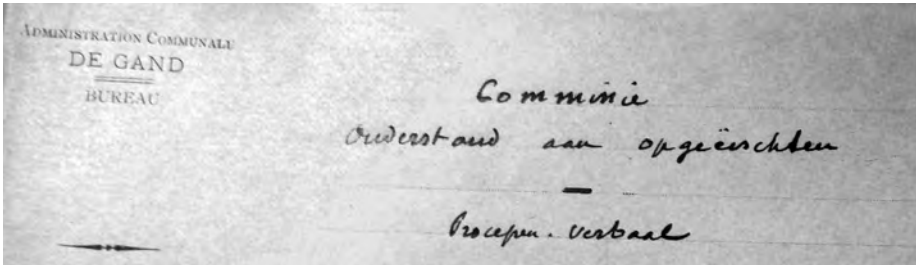 ADMINISTRATION COMMUNALE
DE GAND
BUREAU
Comminie
Onderstand aan opgeëischten
Processen-verbaal